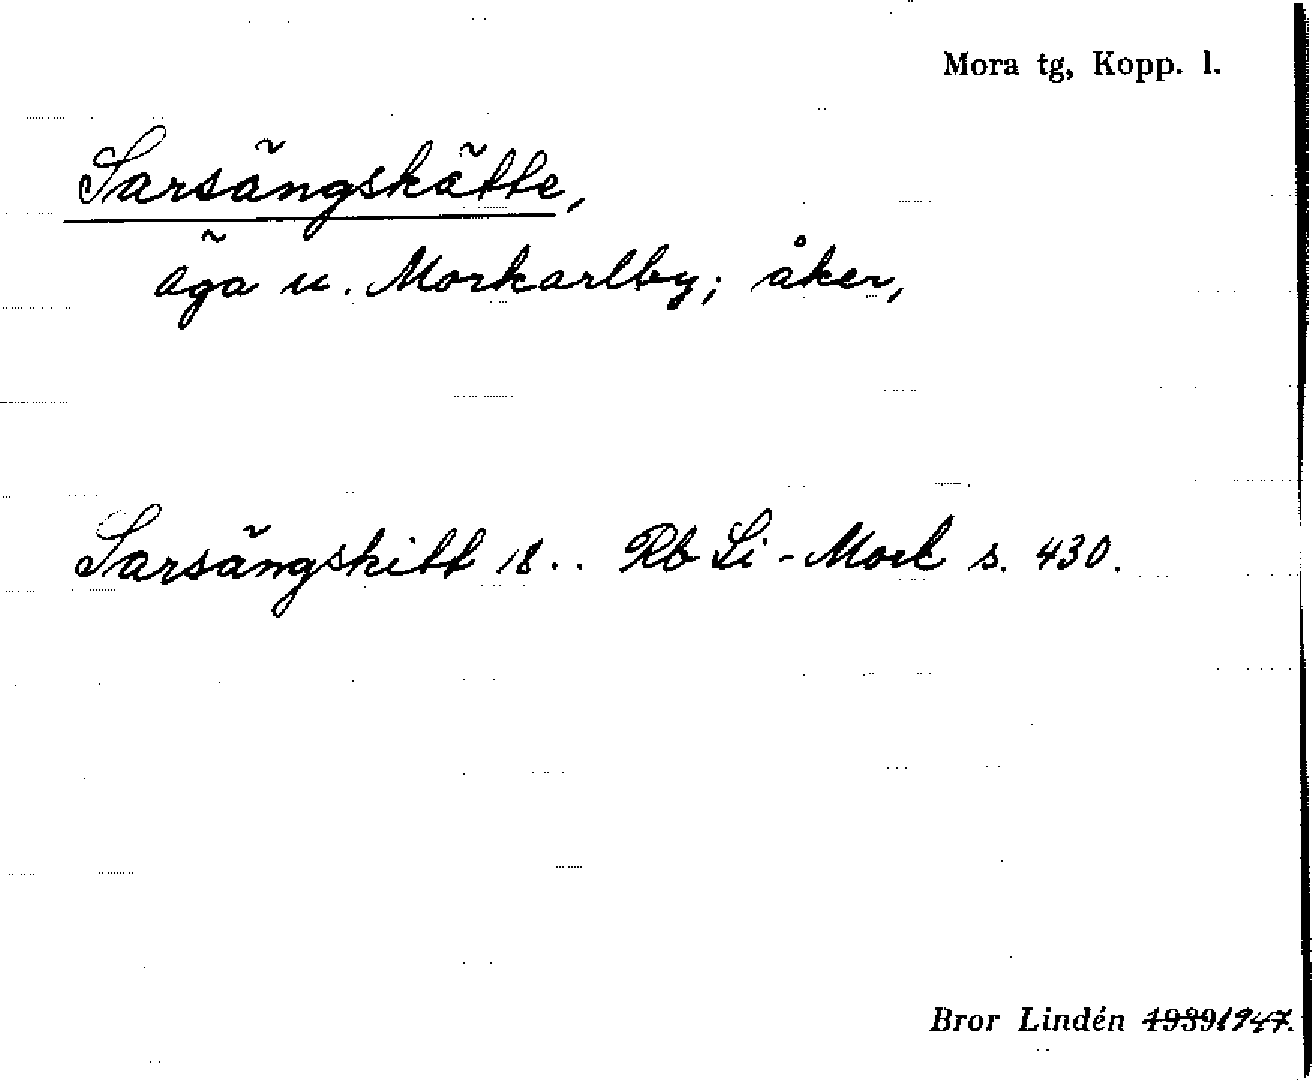 Mora tg, Kopp. l.
Sarsängskätte,
äga u. Morkarlby; åker,
Sarsängskitt 18.. Rb Li-Mork s. 430.
Bror Lindén 1939 1947.